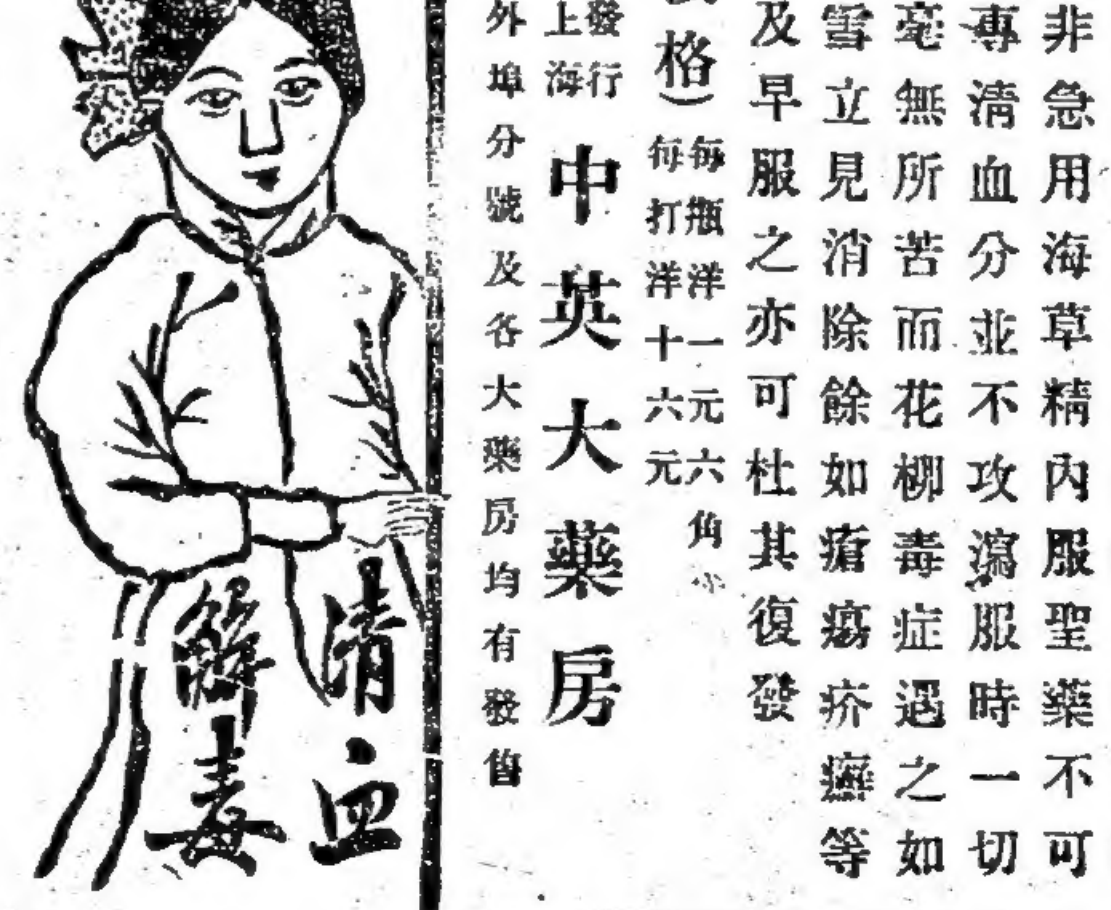 非急用海草精內服聖藥不可
專清血分並不攻瀉服時一切
毫無所苦而花柳毒症遇之如
雪立見消除餘如瘡瘍疥癬等
及早服之亦可杜其復發
格）
每瓶洋一元六角
每打洋十六元
發行
上海
中英大藥房
外埠分號及各大藥房均有發售
清血
解毒